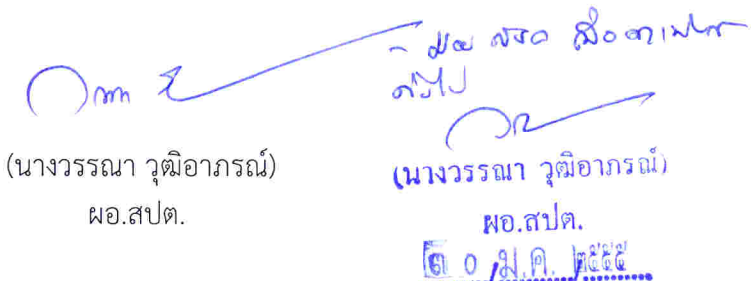 ต่อไป
(นางวรรณา วุฒิอาภรณ์)
ผอ.สปต.
(นางวรรณา วุฒิอาภรณ์)
ผอ.สปต.
๓ ๐ ม.ค. ๒๕๕๕